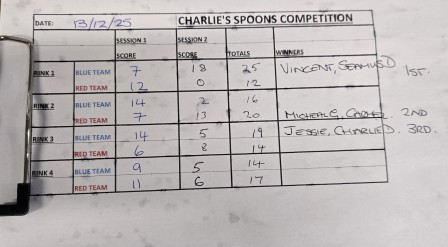 DATE: 13/12/25 CHARLIE'S SPOONS COMPETITION
SESSION 1 SESSION 2
SCORE SCORE TOTALS WINNERS
RINK 1 BLUE TEAM 7 18 25 VINCENT, SEAMUS D 1ST.
RED TEAM 12 0 12
RINK 2 BLUE TEAM 14 2 16
RED TEAM 7 13 20 MICHEAL G, 2ND
RINK 3 BLUE TEAM 14 5 19 JESSIE, CHARLIE D. 3RD.
RED TEAM 6 8 14
RINK 4 BLUE TEAM 9 5 14
RED TEAM 11 6 17